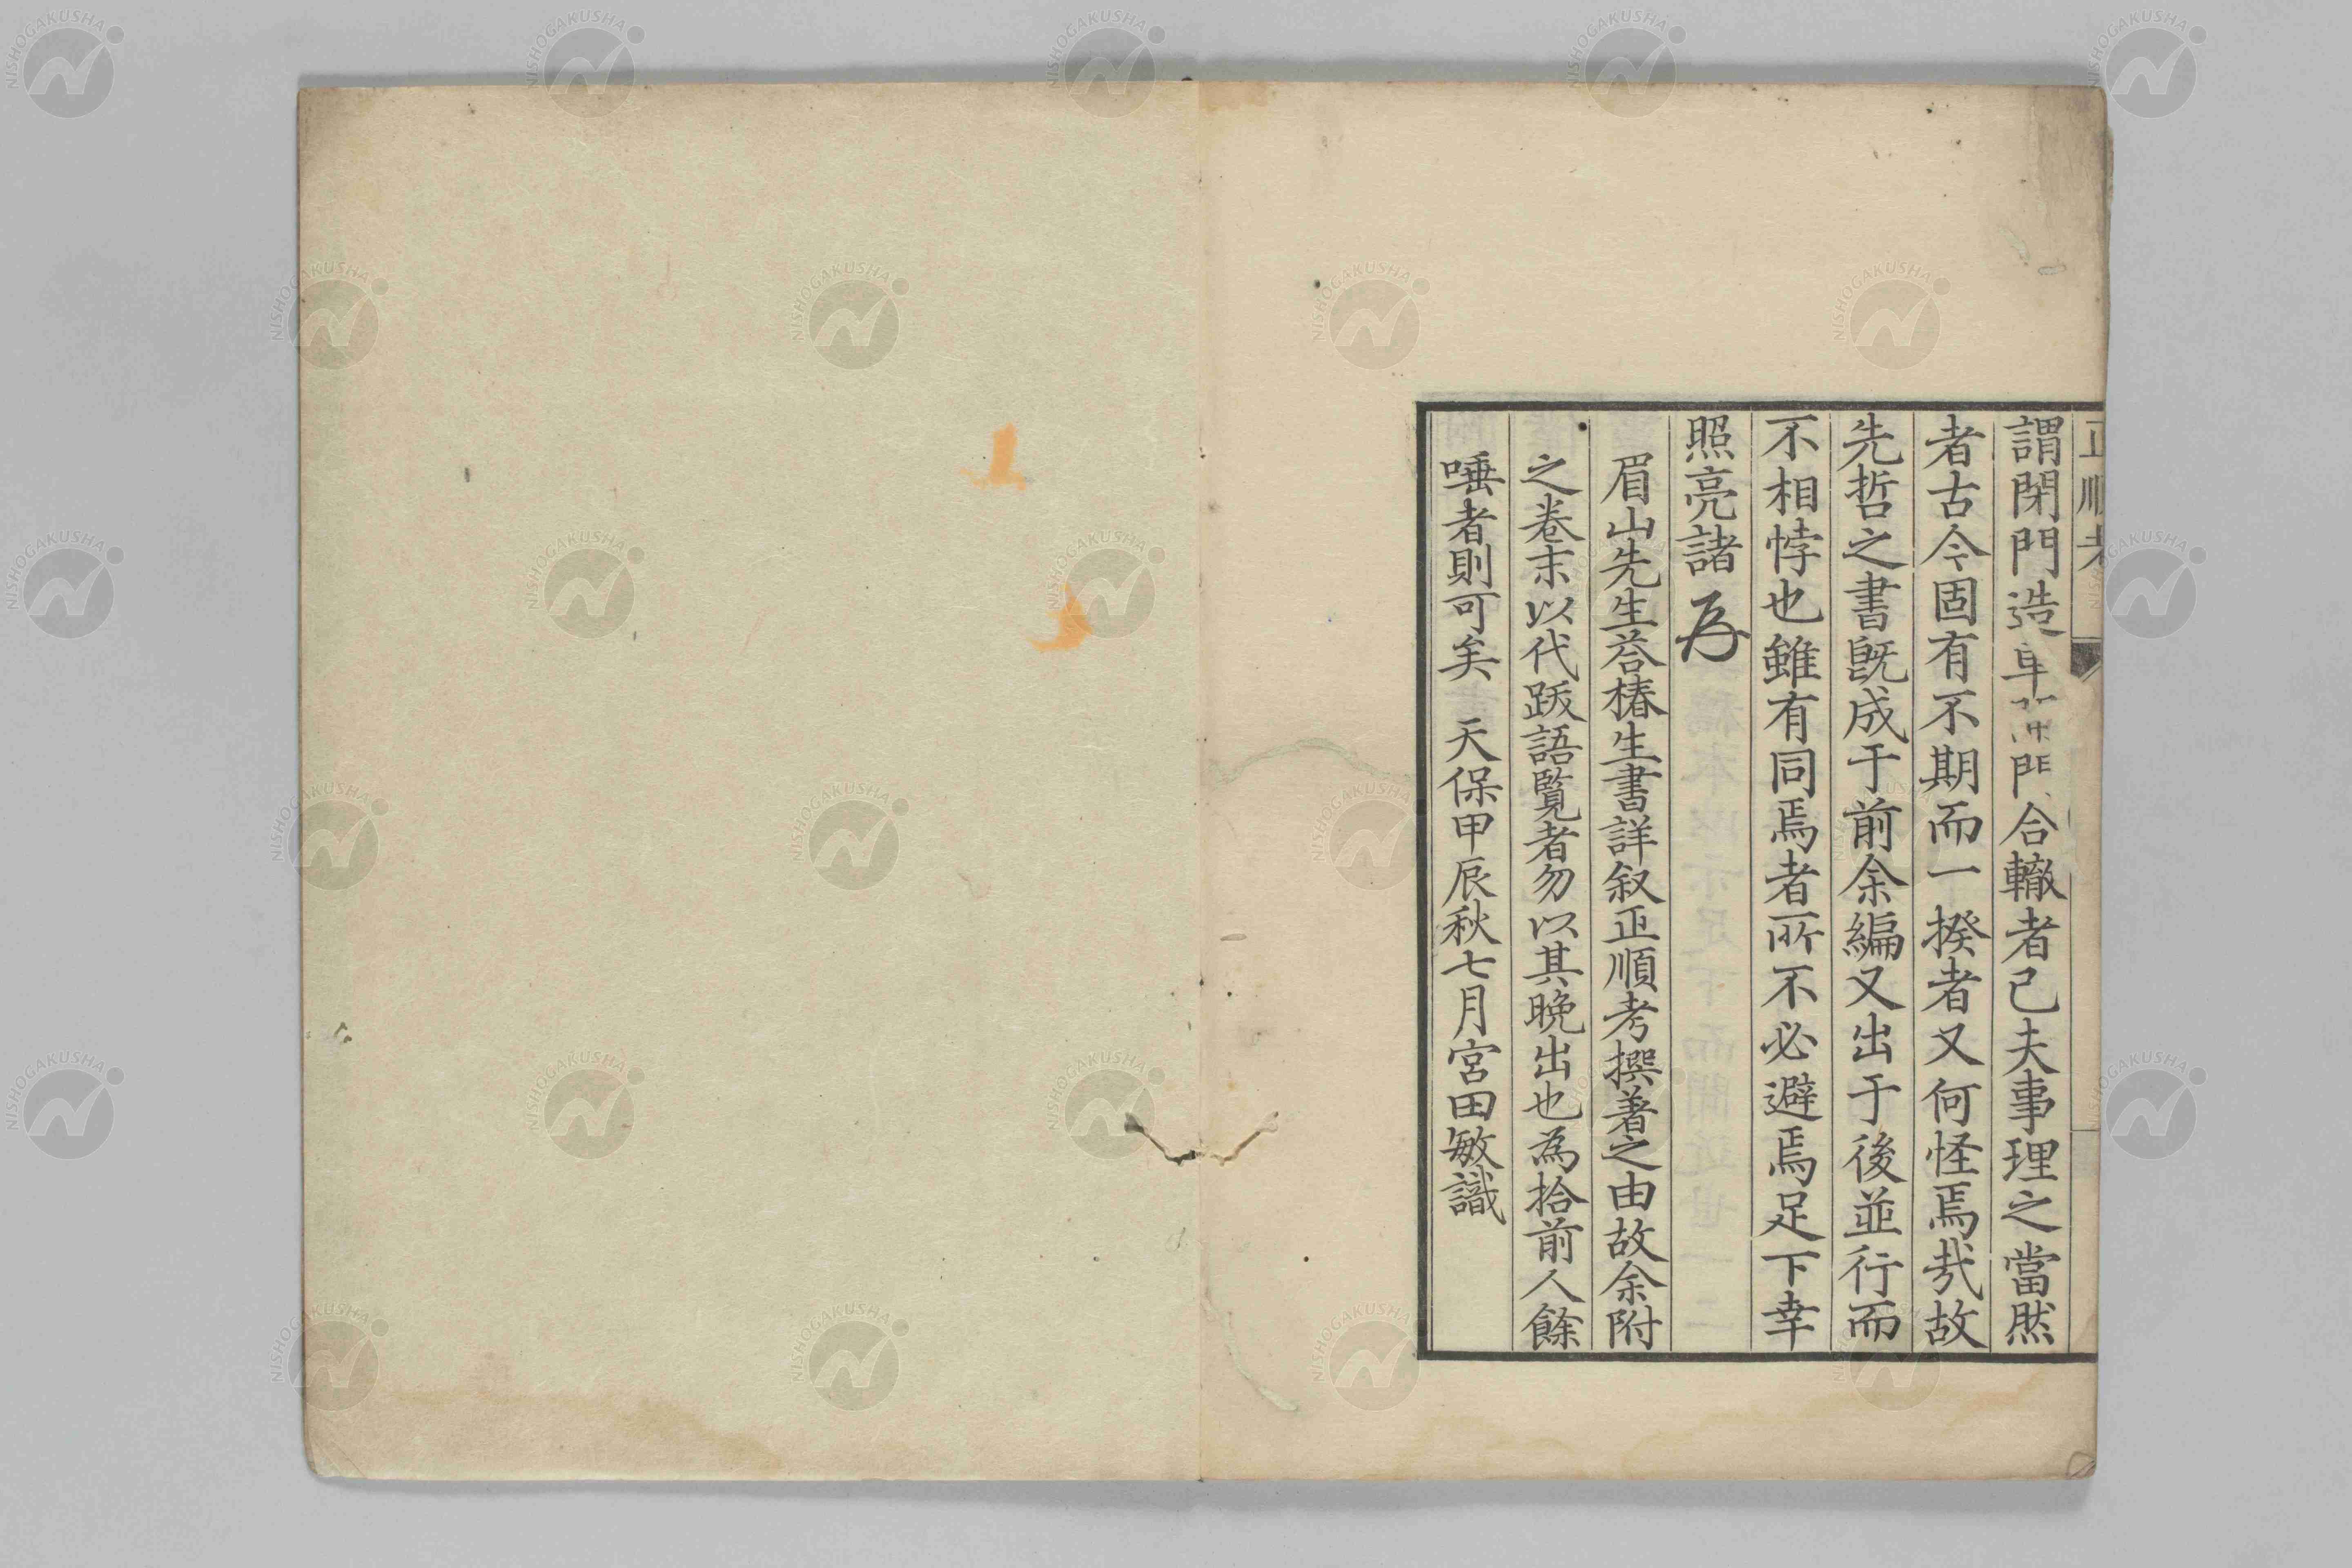 正順考
謂閉門造車開門合轍者已夫事理之當然
者古今固有不期而一揆者又何怪焉哉故
先哲之書既成于前余編又出于後並行而
不相悖也雖有同焉者所不必避焉足下幸
照亮諸不
眉山先生答椿生書詳叙正順考撰著之由故余附
之卷末以代跋語覧者勿以其晩出也為拾前人餘
唾者則可矣 天保甲辰秋七月宮田敏識
NISHOGAKUSHA